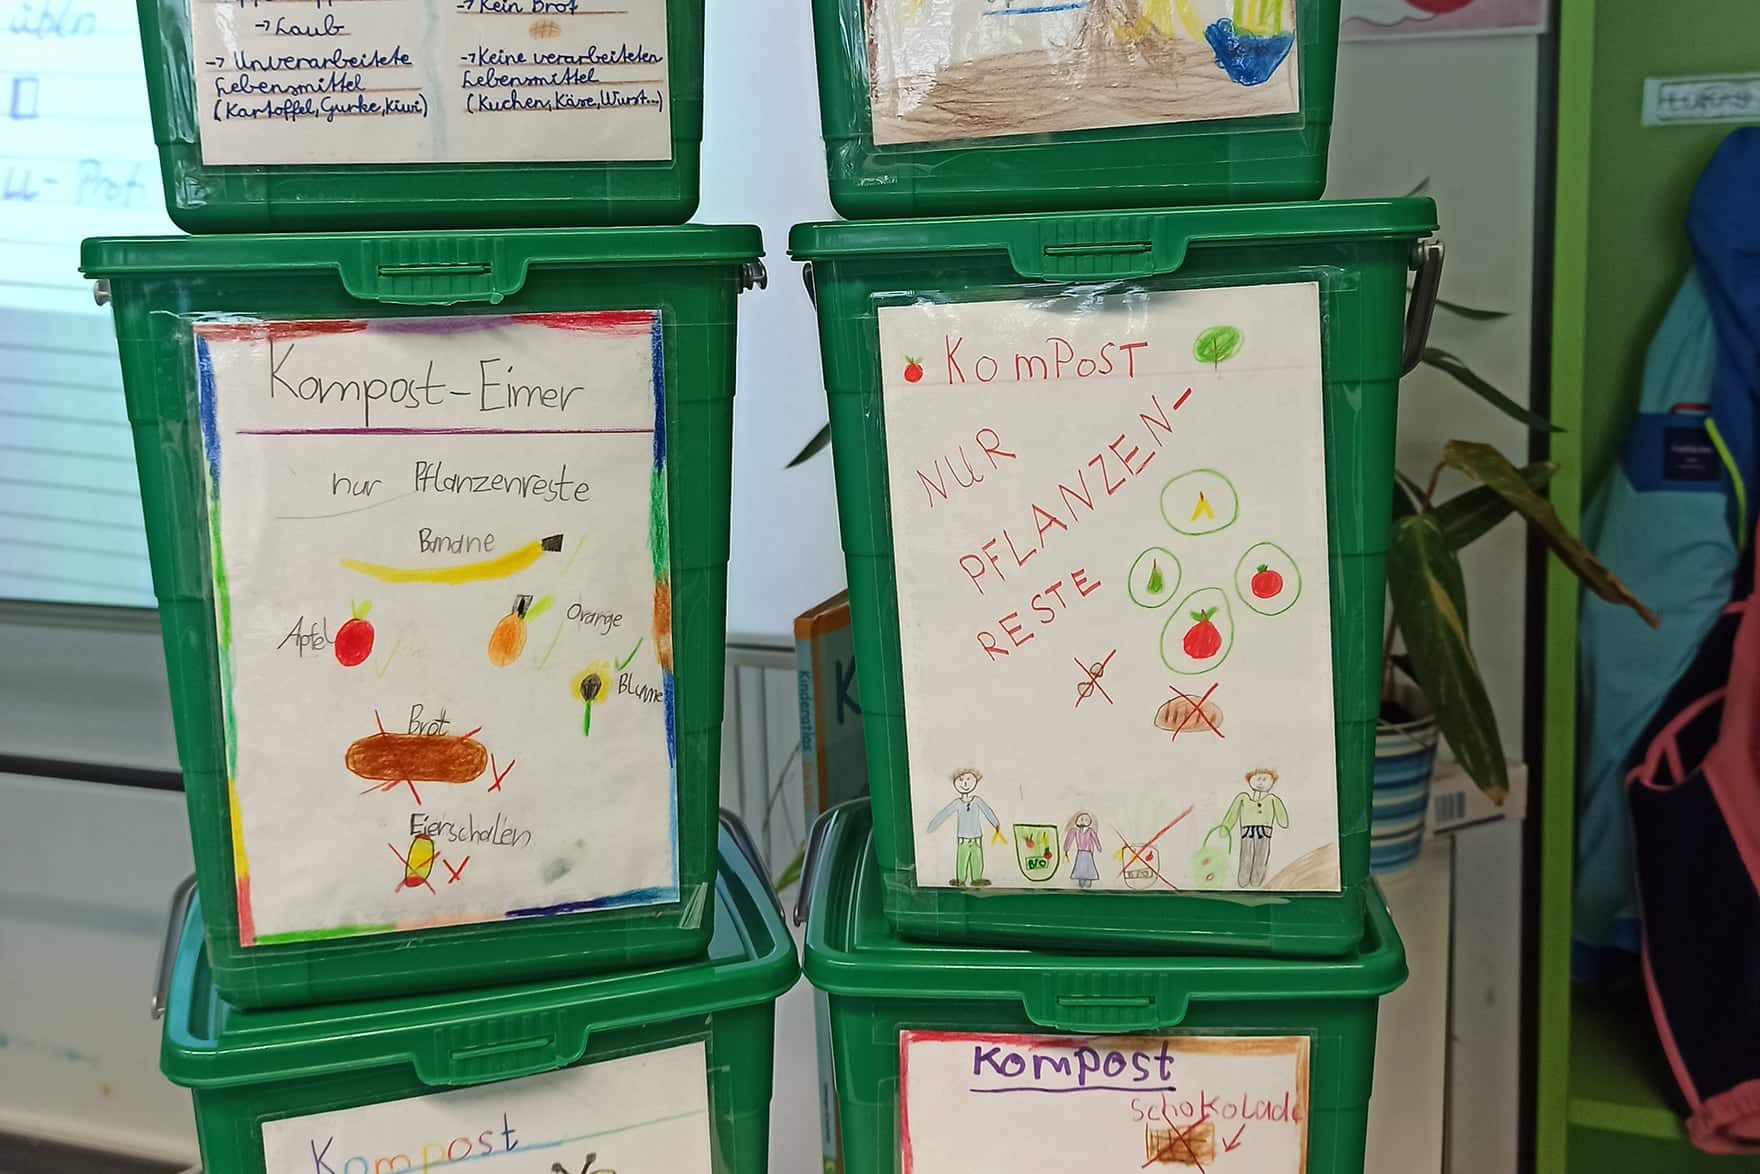 übln
-> Laub
-> Unverarbeitete
Lebensmittel
(Kartoffel, Gurke, Kiwi)
-> Kein Brot
-> Keine verarbeiteten
Lebensmittel
(Kuchen, Käse, Wurst...)
Kompost-Eimer
nur Pflanzenreste
Banane
Apfel
Orange
Blume
Brot
Eierschalen
KomPosT
NUR
PFLANZEN-
RESTE
BIO
BIO
Kinderatlas
Kompost
Kompost
Schokolade